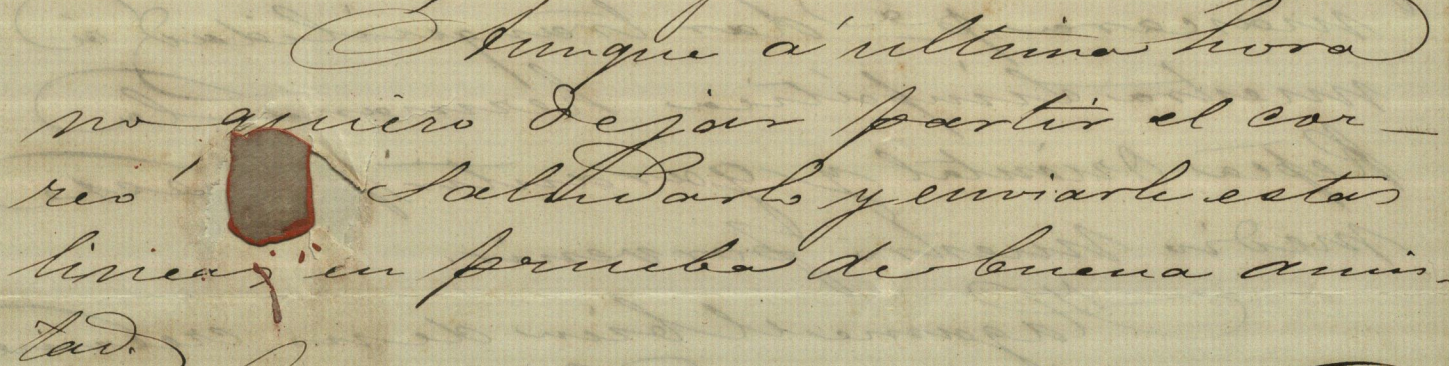 Aunque á ultima hora
no quiero dejar partir el cor-
reo Saludarlo y enviarle estas
lineas en prueba de buena amis-
tad.